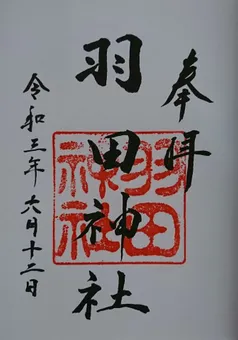 奉拝
羽田神社
令和三年六月十二日
羽田
神社